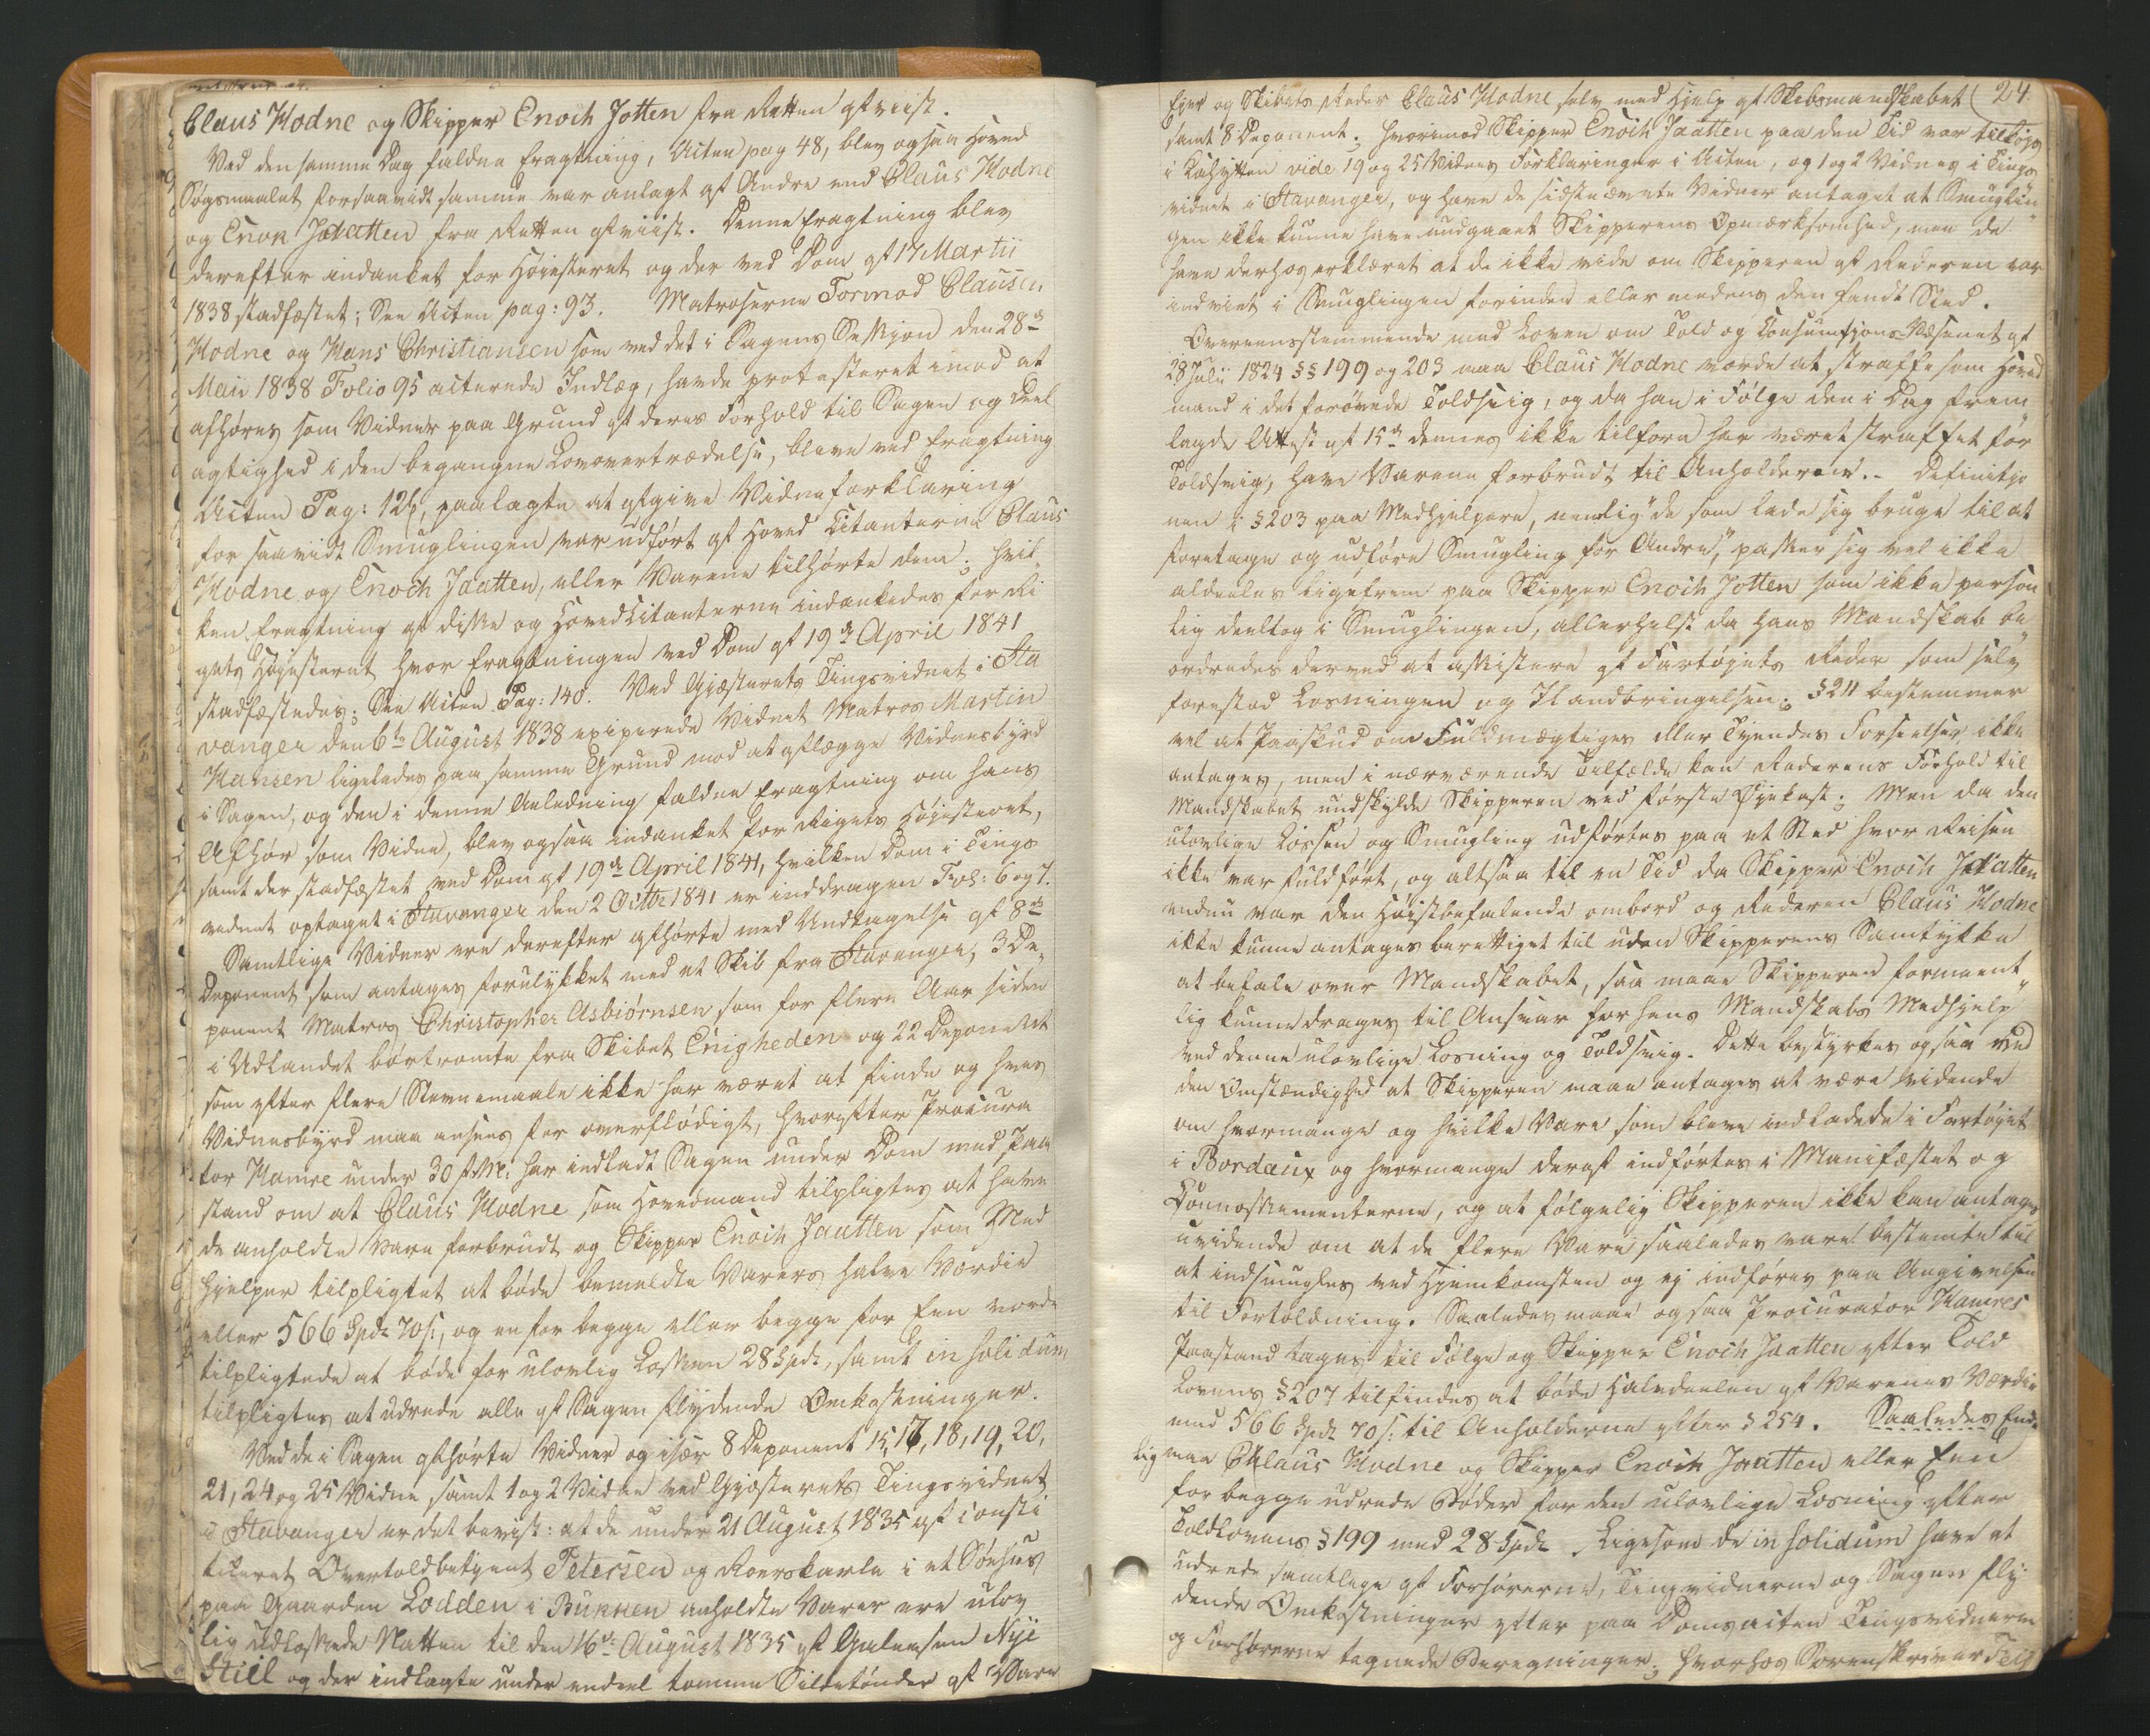 Claus Hodne og Skipper Enoch Jotten fra Retten afviist.
Ved den samme Dag faldne Eragtning, Acten pag 48, blev ogsaa Hoved
Søgsmaalet forsaavidt samme var anlagt af Andre end Claus Hodne
og Enok Jaatten fra Retten afviist. Denne Eragtning blev
derefter indanket for Høiesteret og der ved Dom af 17 Martii
1838 stadfæstet; See Acten pag: 93. Matroserne Tormod Clausen
Hodne og Hans Christiansen som ved det i Sagens Session den 28de
Maii 1838 Folio 95 acterede Indlæg, havde protesteret imod at
afhøres som Vidner paa Grund af deres Forhold til Sagen og Deel
agtighed i den begangne Lovovertrædelse, bleve ved Eragtning
Acten Pag: 126, paalagte at afgive Vidneforklaring
for saavidt Smuglingen var udført af Hoved Citanterne Claus
Hodne og Enoch Jaatten, eller Varene tilhørte dem; hvil
ken Eragtning af disse og HovedCitanterne indankedes for Ri
gets Høiesteret hvor Eragtningen ved Dom af 19de April 1841
stadfæstedes; See Acten Pag: 140. Ved Gjæsterets Tingsvidnet i Sta
vanger den 6te August 1838 exiperede Vidnet Matros Martin
Hansen ligeledes paa samme Grund mod at aflægge Vidnesbyrd
i Sagen, og den i denne Anledning faldne Eragtning om hans
Afhør som Vidne, blev ogsaa indanket for Rigets Høiesteret,
samt der stadfæstet ved Dom af 19de April 1841, hvilken Dom i Tings
vidnet optaget i Stavanger den 2 Octbr 1841 er inddragen Fol: 6 og 7.
Samtlige Vidner ere derefter afhørte med Undtagelse af 8de
Deponent som antages forulykket med et Skib fra Stavanger, 3 De„
ponent Matros Christopher Asbiørnsen som for flere Aar siden
i Udlandet bortrømte fra Skibet Enigheden og 22 Deponent
som efter flere Stevnemaale ikke har været at finde og hvis
Vidnesbyrd maa ansees for overflødigt, hvorefter Procura
tor Hamre under 30 f. M: har indladt Sagen under Dom med Paa
stand om at Claus Hodne som Hovedmand tilpligtes at have
de anholdte Vare forbrudt og Skipper Enoch Jaatten som Med
hjelper tilpligtet at bøde bemeldte Varers halve Værdie
eller 566 Spd 70 s:, og en for begge eller begge for Een vorde
tilpligtede at bøde for ulovlig Lossen 28 Spd:, samt in solidum
tilpligtes at udrede alle af Sagen flydende Omkostninger.
Ved de i Sagen afhørte Vidner og især 8 Deponent 15, 17, 18, 19, 20,
21, 24 og 25 Vidne, samt 1 og 2 Vidne ved Gjæsterets Tingsvidnet
i Stavanger er det beviist: at de under 21 August 1835 af consti
tueret Overtoldbetjent Petersen og Roerskarle i et Søehus
paa Gaarden Lodden i Bukken anholdte Varer ere ulov
lig udlossede Natten til den 16de August 1835 af Galeasen Nye
Still og der indlagte under endeel tomme Sildetønder af Vare
24.
Ejer og Skibets Reder Claus Hodne selv med Hjelp af Skibsmandskabet
samt 8 Deponent; hvorimod Skipper Enoch Jaatten paa den Tid var tilkøjs
i Kahytten vide 19 og 25 Vidnes Forklaringer i Acten, og 1 og 2 Vidnes i Tings
vidnet i Stavanger, og have de sidstnævnte Vidner antaget at Smuglin„
gen ikke kunne have undgaaet Skipperens Opmærksomhed, men de
have derhos erklæret at de ikke vide om Skipperen af Rederen var
indviet i Smuglingen forinden eller medens den fandt Sted.
Overeensstemmende med Loven om Told og Consumtjons-Væsenet af
28 Julii 1824 §§ 199 og 203 maa Claus Hodne vorde at straffe som Hoved
mand i det forøvede Toldsvig, og da han i Følge den i Dag frem
lagde Attest af 15de dennes ikke tilforn har været straffet for
Toldsvig, have Varene forbrudt til Anholderne.- Definitjo
nen i § 203 paa Medhjelpere, nemlig "de som lade sig bruge til at
foretage og udføre Smugling for Andre," passer sig vel ikke
aldeeles ligefrem paa Skipper Enoch Jotten som ikke person
lig deeltog i Smuglingen, allerhelst da hans Mandskab be„
ordredes derved at assistere af Fartøjets Reder som selv
forestod Losningen og Ilandbringelsen; § 211 bestemmer
vel at Paaskud om Fuldmægtiges eller Tyendes Forseelser ikke
antages, men i nærværende Tilfælde kan Rederens Forhold til
Mandskabet undskylde Skipperen ved første Øjekast; Men da den
ulovlige Lossen og Smugling udførtes paa et Sted hvor Reisen
ikke var fuldført, og altsaa til en Tid da Skipper Enoch Jaatten
endnu var den Høistbefalende ombord og Rederen Claus Hodne
ikke kunne antages berettiget til uden Skipperens Samtykke
at befale over Mandskabet, saa maae Skipperen formeent„
lig kunne drages til Ansvar for hans Mandskabs Medhjelp
ved denne ulovlige Losning og Toldsvig. Dette bestyrkes ogsaa ved
den Omstændighed at Skipperen maae antages at være vidende
om hvormange og hvilke Vare som bleve indladede i Fartøjet
i Bordaux og hvormange deraf indførtes i Manifæstet og
Connossementerne, og at følgelig Skipperen ikke kan antages
uvidende om at de flere Vare saaledes vare bestemte til
at indsmugles ved Hjemkomsten og ej indføres paa Angivelsen
til Fortoldning. Saaledes maae ogsaa Procurator Hamres
Paastand tages til Følge og Skipper Enoch Jaatten efter Told
Lovens § 207 tilfindes at bøde Halvdeelen af Varenes Værdie
med 566 Spd 70 s: til Anholderne efter § 254. Saaledes End„
lig maa Claus Hodne og Skipper Enoch Jaatten eller Een
for begge udrede Bøder for den ulovlige Losning efter
ToldLovens § 199 med 28 Spd Ligesom de in solidum have at
udrede samtlige af Forhørerne, Tingsvidnerne og Sagen fly„
dende Omkostninger efter paa Domsacten Tingsvidnerne
og Forhørerne tegnede Beregninger; hvorhos Sorenskriver Feig